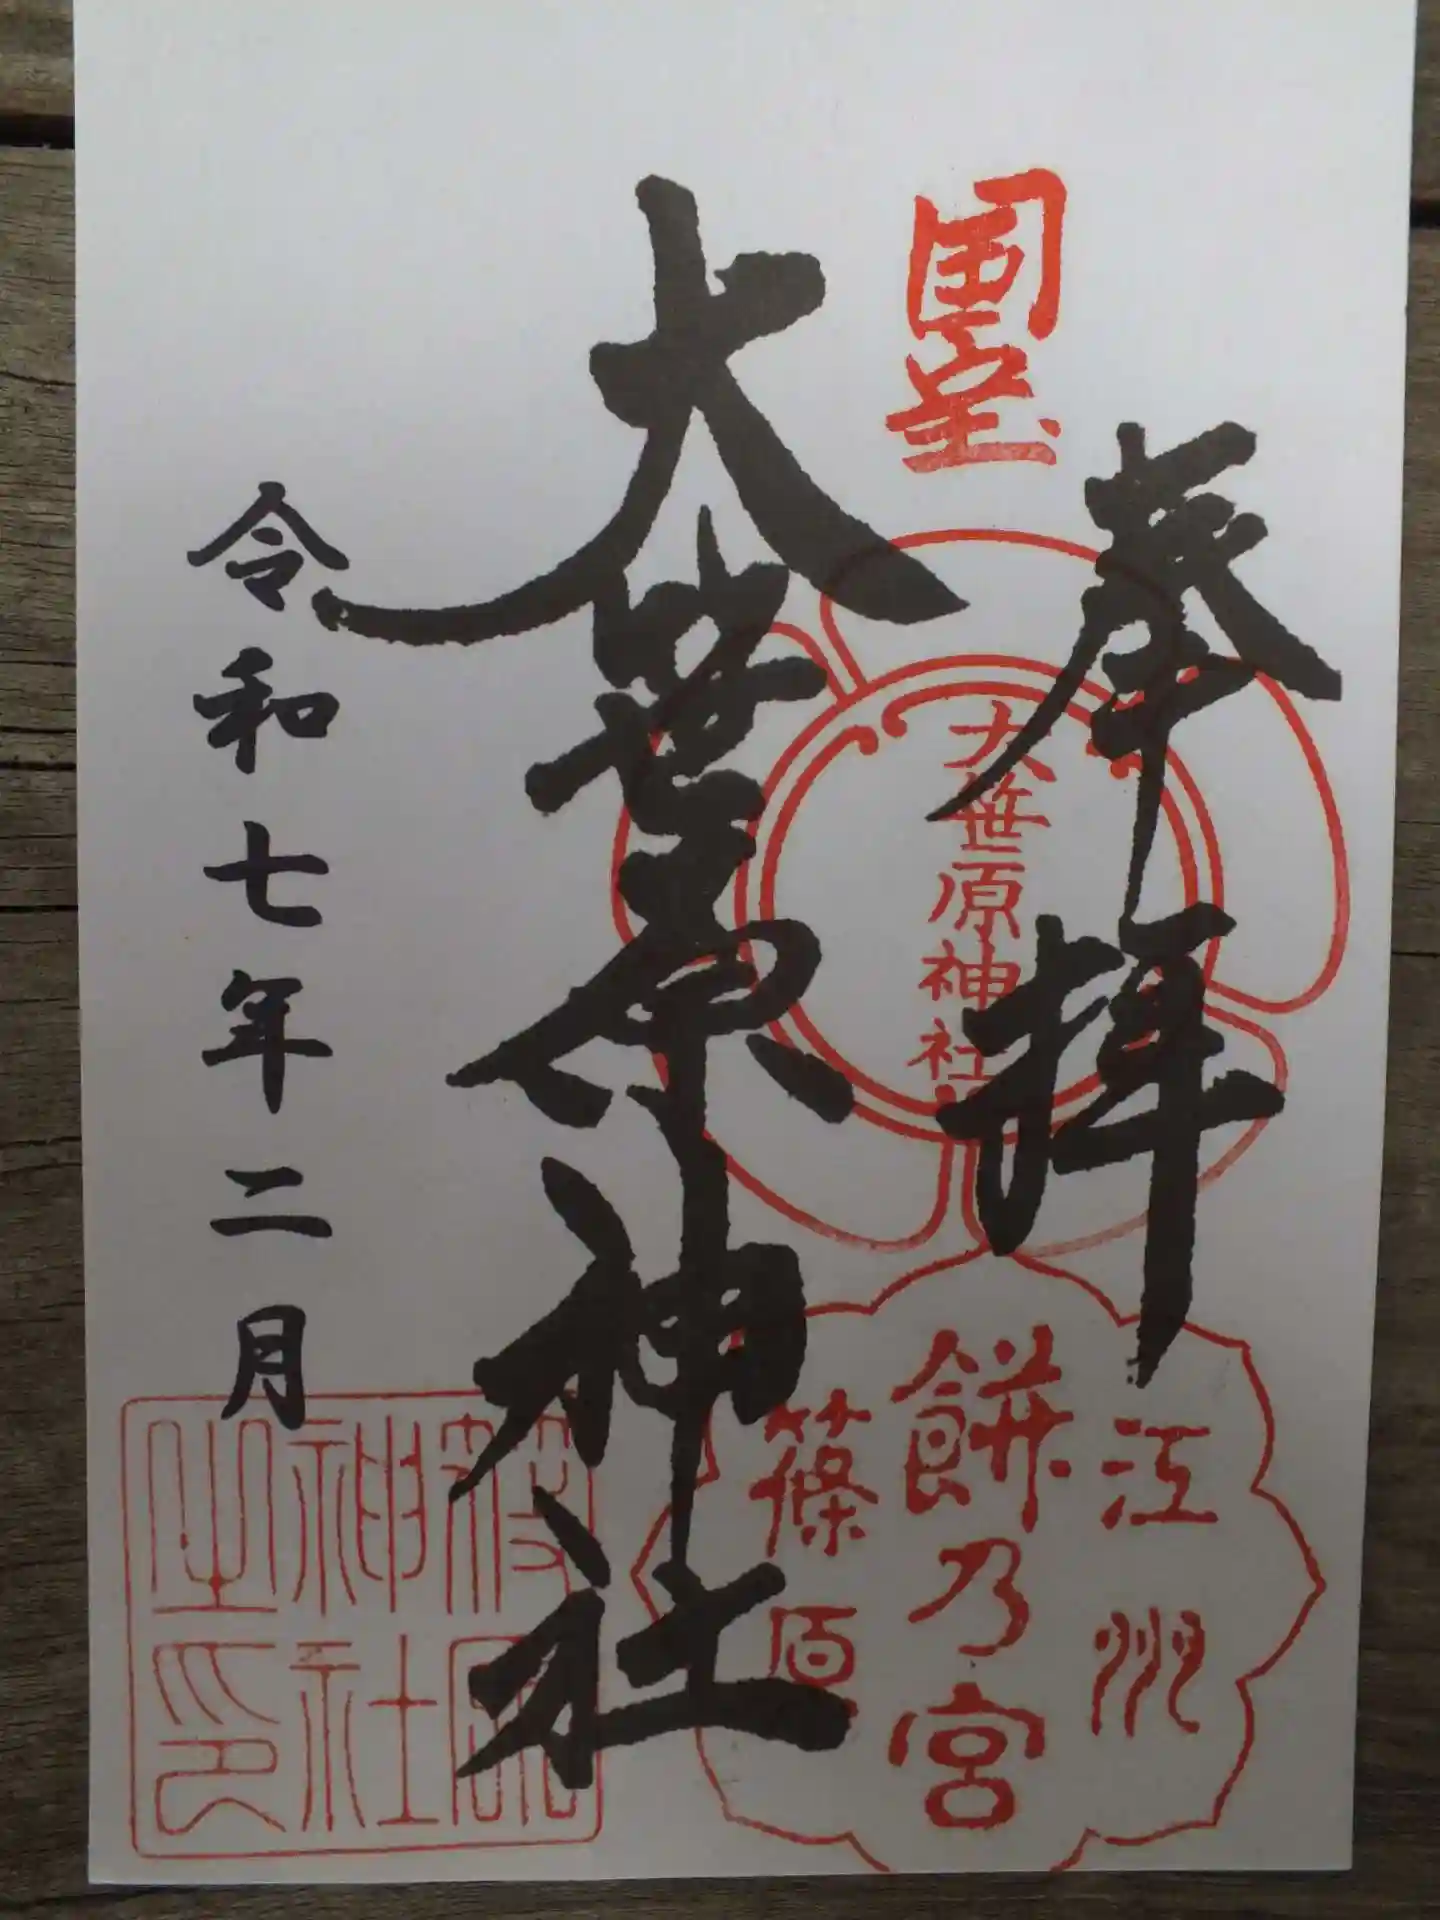 国宝
奉拝
大笹原神社
江州
餅乃宮
篠原
大笹原神社
神社
之印
令和七年二月